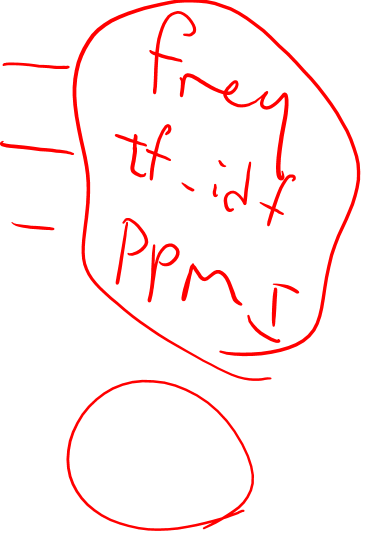 freq
tf-idf
PPMI